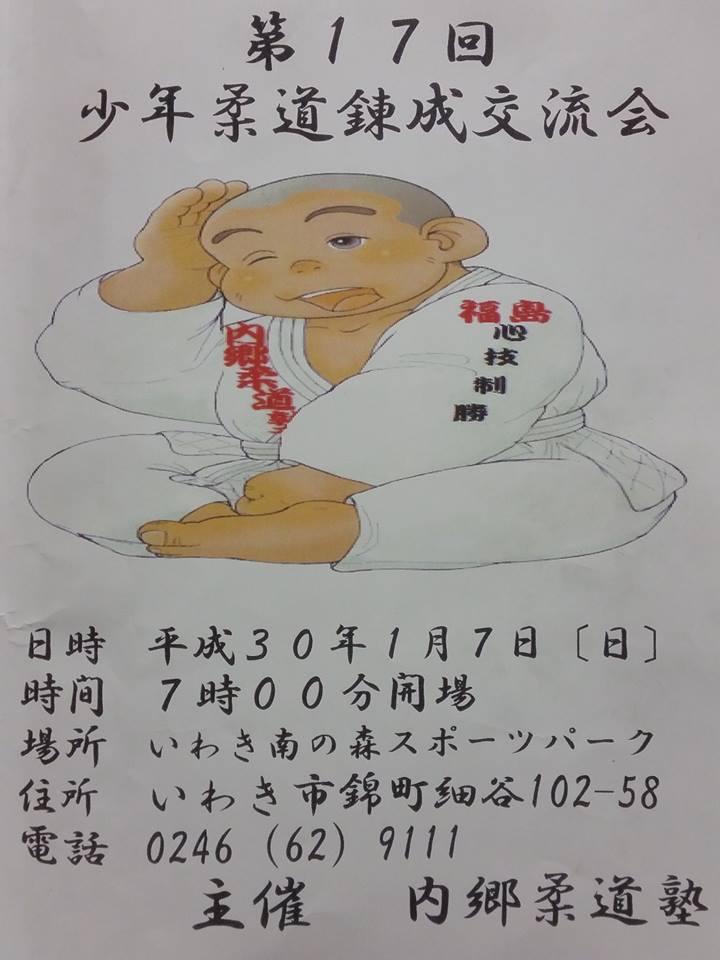 第１７回
少年柔道錬成交流会
福島
心技制勝
内郷柔道塾
日時　平成３０年１月７日〔日〕
時間　７時００分開場
場所　いわき南の森スポーツパーク
住所　いわき市錦町細谷102-58
電話　0246（62）9111
主催　内郷柔道塾